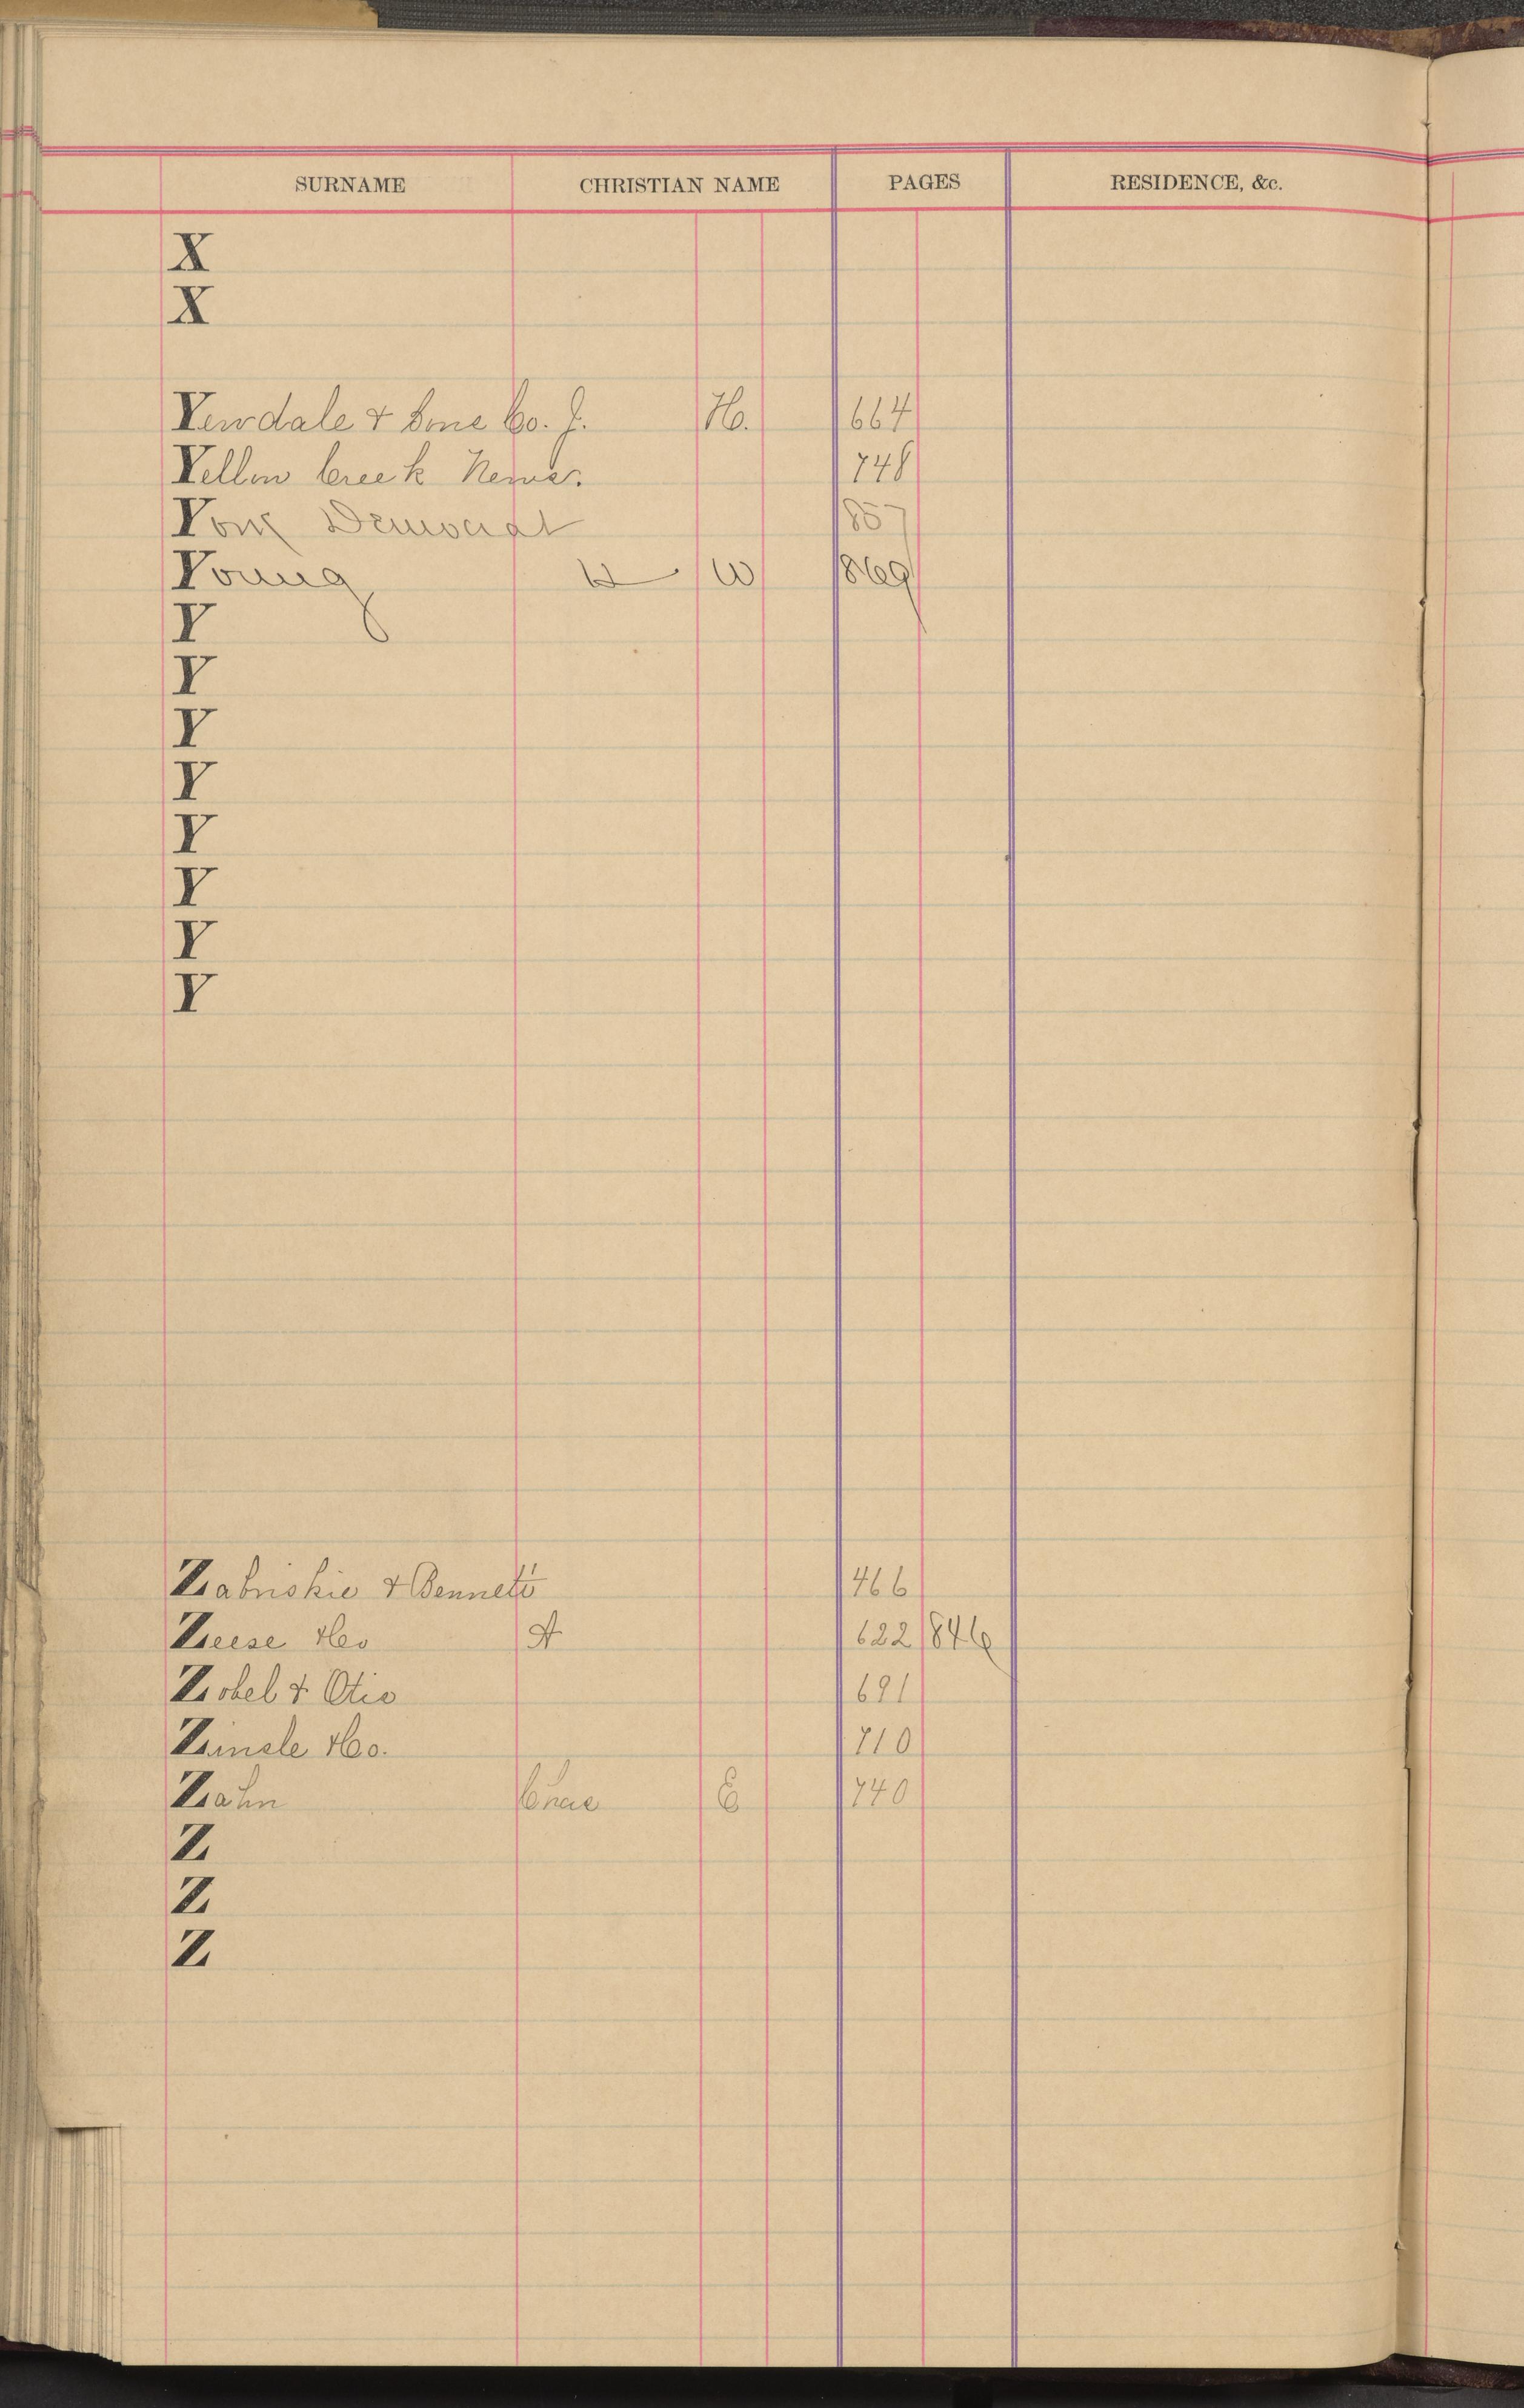 SURNAME CHRISTIAN NAME PAGES RESIDENCE, &c.
X
X
Yewdale & Sons Co. J. H. 664
Yellow Creek News. 748
York Democrat 857
Young W 869
Y
Y
Y
Y
Y
Y
Y
Y
Zabriskie & Bennett 466
Zeese &Co A 622 846
Zobel & Otis 691
Zinsle &Co. 710
Zahn E 740
Z
Z
Z